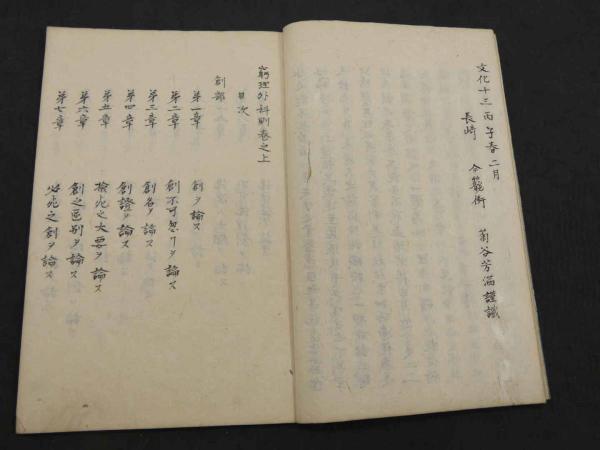 文化十三丙子春二月
長崎 合龍街 菊谷芳満謹識
窮理外科則巻之上
目次
創部
第一章 創ヲ論ス
第二章 創不可忽リヲ論ス
第三章 創名ヲ論ス
第四章 創證ヲ論ス
第五章 検死之大要ヲ論ス
第六章 創之區別ヲ論ス
第七章 必死之創ヲ論ス